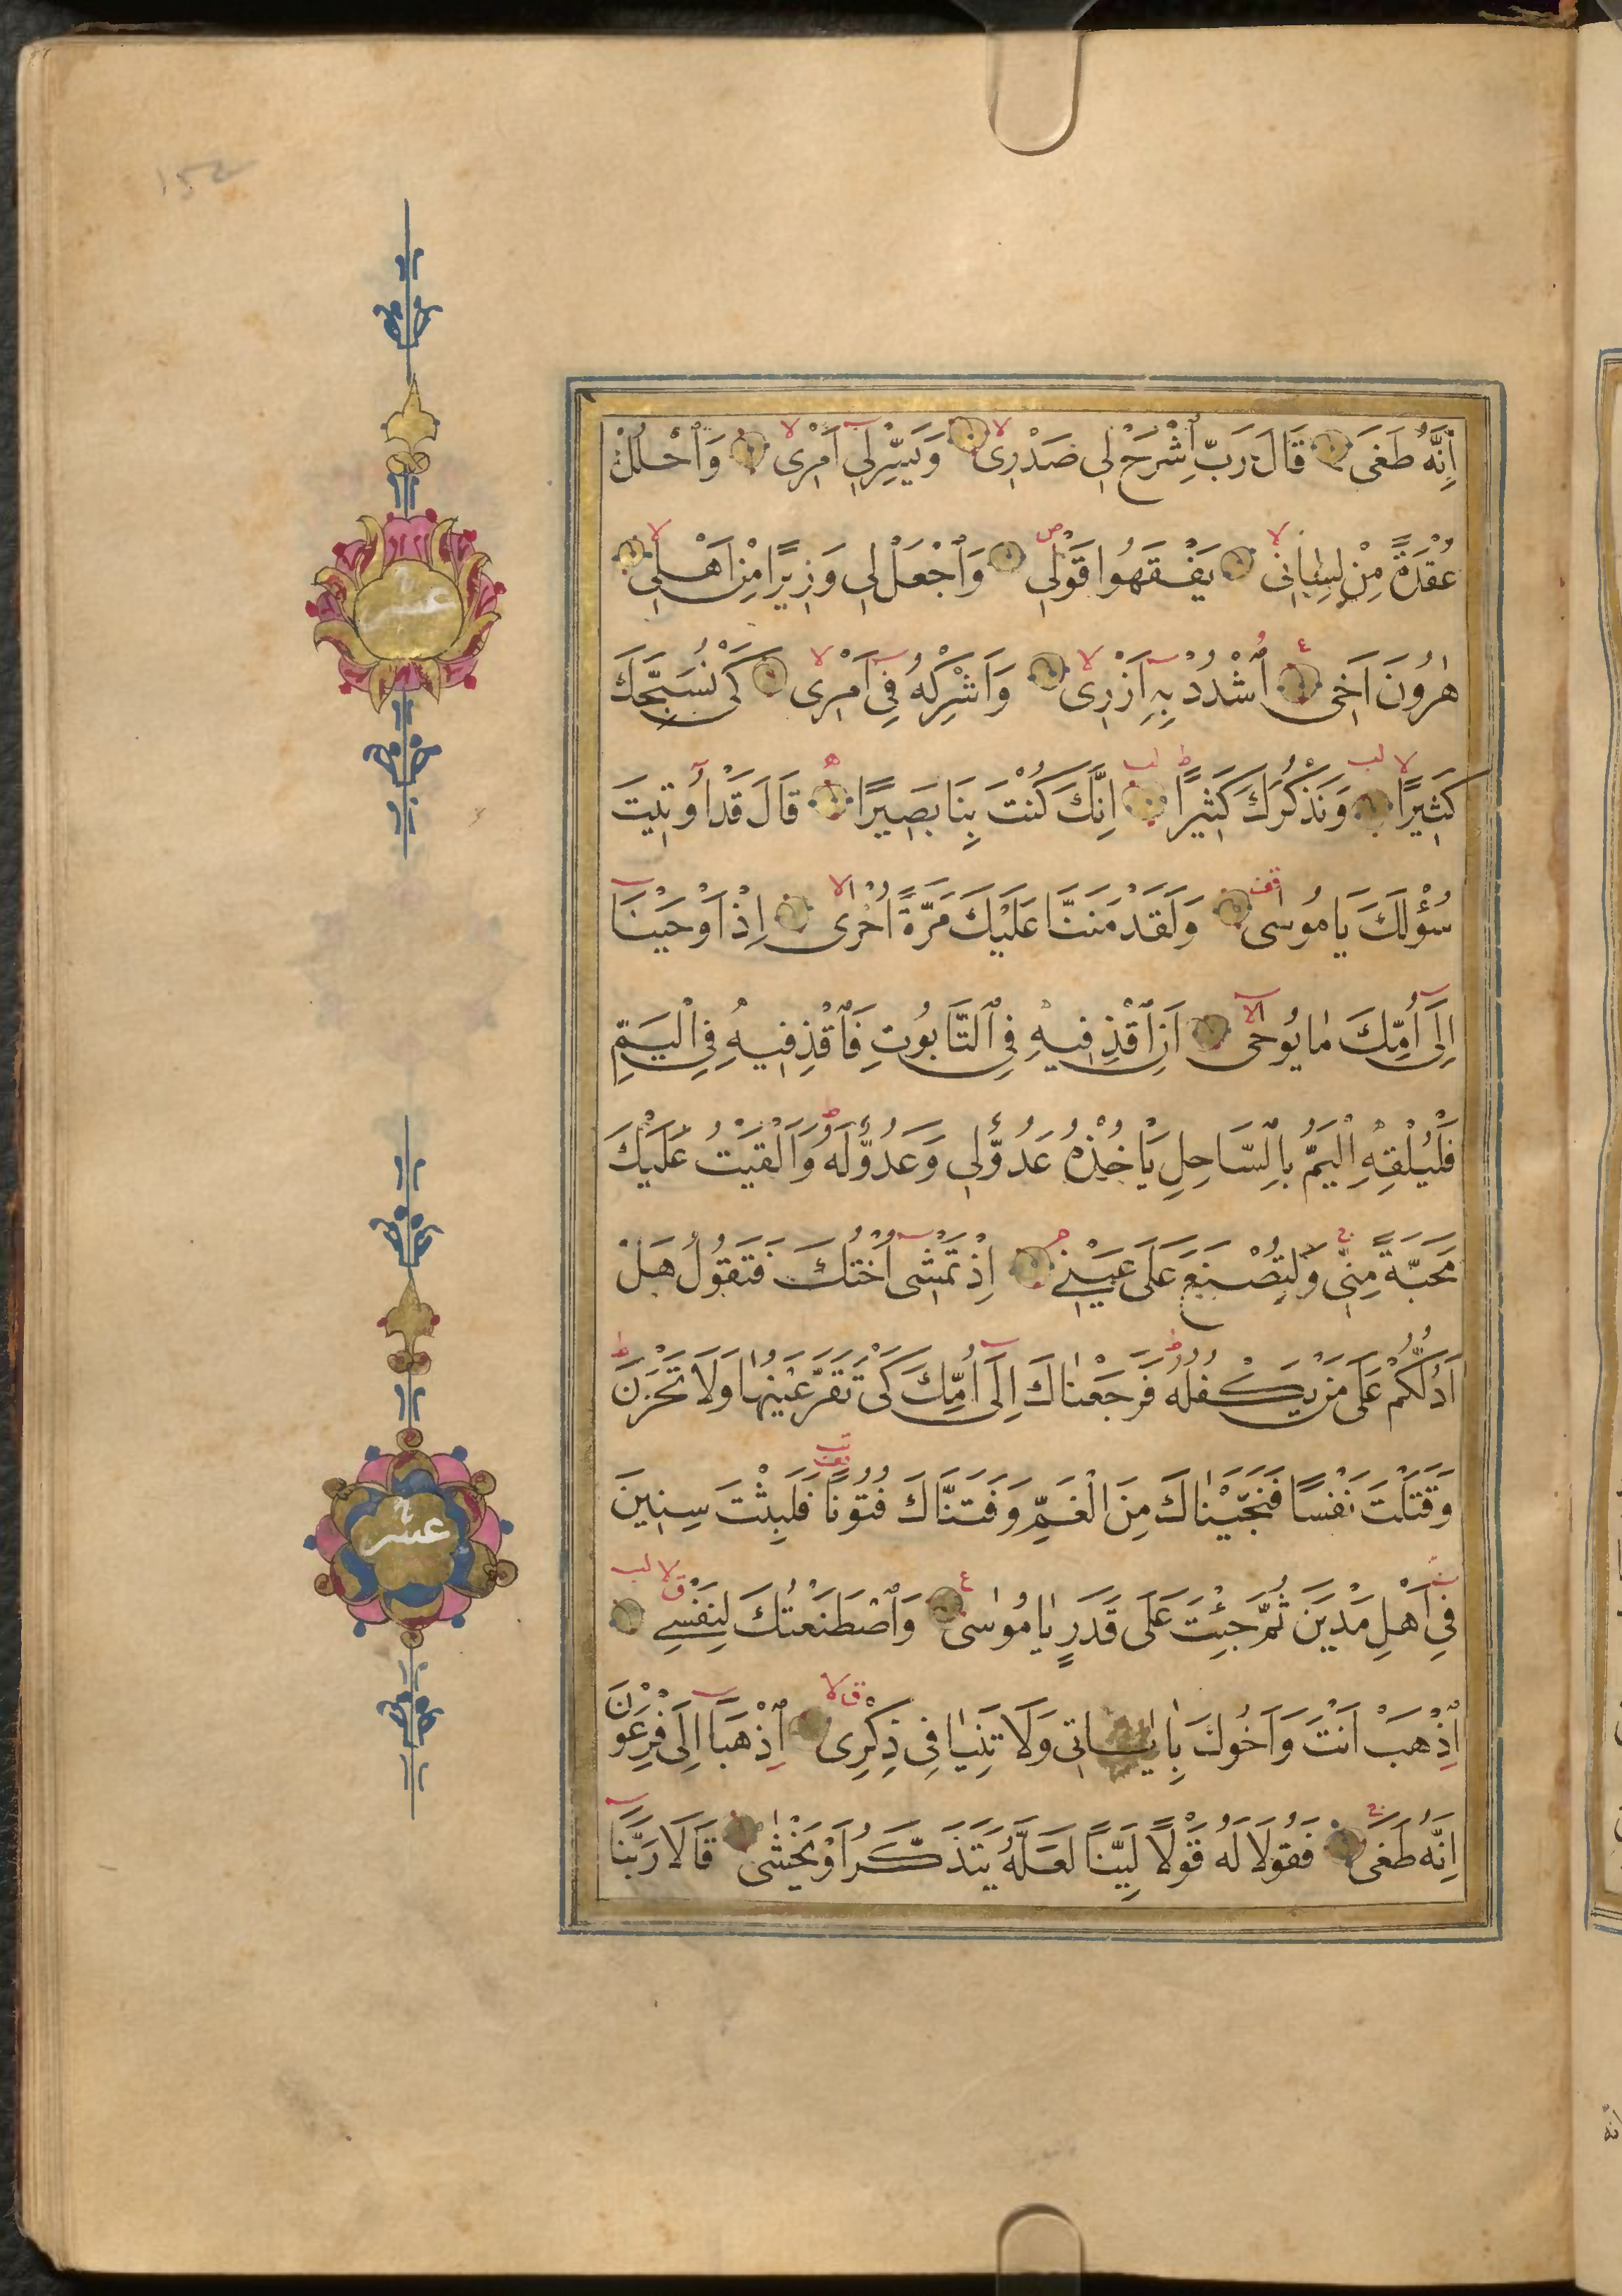 اِنَّهُ طَغَى قَالَ رَبِّ اشْرَحْ لِى صَدْرِى وَيَسِّرْلِى اَمْرِى وَاحْلُلْ
عُقْدَةً مِنْ لِسَانِى يَفْقَهُوا قَوْلِى وَاجْعَلْ لِى وَزِيرًا مِنْ اَهْلِى
هٰرُونَ اَخِى اُشْدُدْ بِهِ اَزْرِى وَاَشْرِكْهُ فِى اَمْرِى كَىْ نُسَبِّحَكَ
كَثِيرًا وَنَذْكُرَكَ كَثِيرًا اِنَّكَ كُنْتَ بِنَا بَصِيرًا قَالَ قَدْ اُوتِيتَ
سُؤْلَكَ يَا مُوسٰى وَلَقَدْ مَنَنَّا عَلَيْكَ مَرَّةً اُخْرٰى اِذْ اَوْحَيْنَا
اِلَى اُمِّكَ مَا يُوحٰى اَنِ اقْذِفِيهِ فِى التَّابُوتِ فَاقْذِفِيهِ فِى الْيَمِّ
فَلْيُلْقِهِ الْيَمُّ بِالسَّاحِلِ يَأْخُذْهُ عَدُوٌّ لِى وَعَدُوٌّ لَهُ وَاَلْقَيْتُ عَلَيْكَ
مَحَبَّةً مِنِّى وَلِتُصْنَعَ عَلَى عَيْنِى اِذْ تَمْشِى اُخْتُكَ فَتَقُولُ هَلْ
اَدُلُّكُمْ عَلَى مَنْ يَكْفُلُهُ فَرَجَعْنَاكَ اِلَى اُمِّكَ كَىْ تَقَرَّ عَيْنُهَا وَلَا تَحْزَنَ
وَقَتَلْتَ نَفْسًا فَنَجَّيْنَاكَ مِنَ الْغَمِّ وَفَتَنَّاكَ فُتُونًا فَلَبِثْتَ سِنِينَ
فِى اَهْلِ مَدْيَنَ ثُمَّ جِئْتَ عَلَى قَدَرٍ يَا مُوسٰى وَاصْطَنَعْتُكَ لِنَفْسِى
اِذْهَبْ اَنْتَ وَاَخُوكَ بِاٰيَاتِى وَلَا تَنِيَا فِى ذِكْرِى اِذْهَبَا اِلَى فِرْعَوْنَ
اِنَّهُ طَغَى فَقُولَا لَهُ قَوْلًا لَيِّنًا لَعَلَّهُ يَتَذَكَّرُ اَوْ يَخْشٰى قَالَا رَبَّنَا
عشر
عشر
152